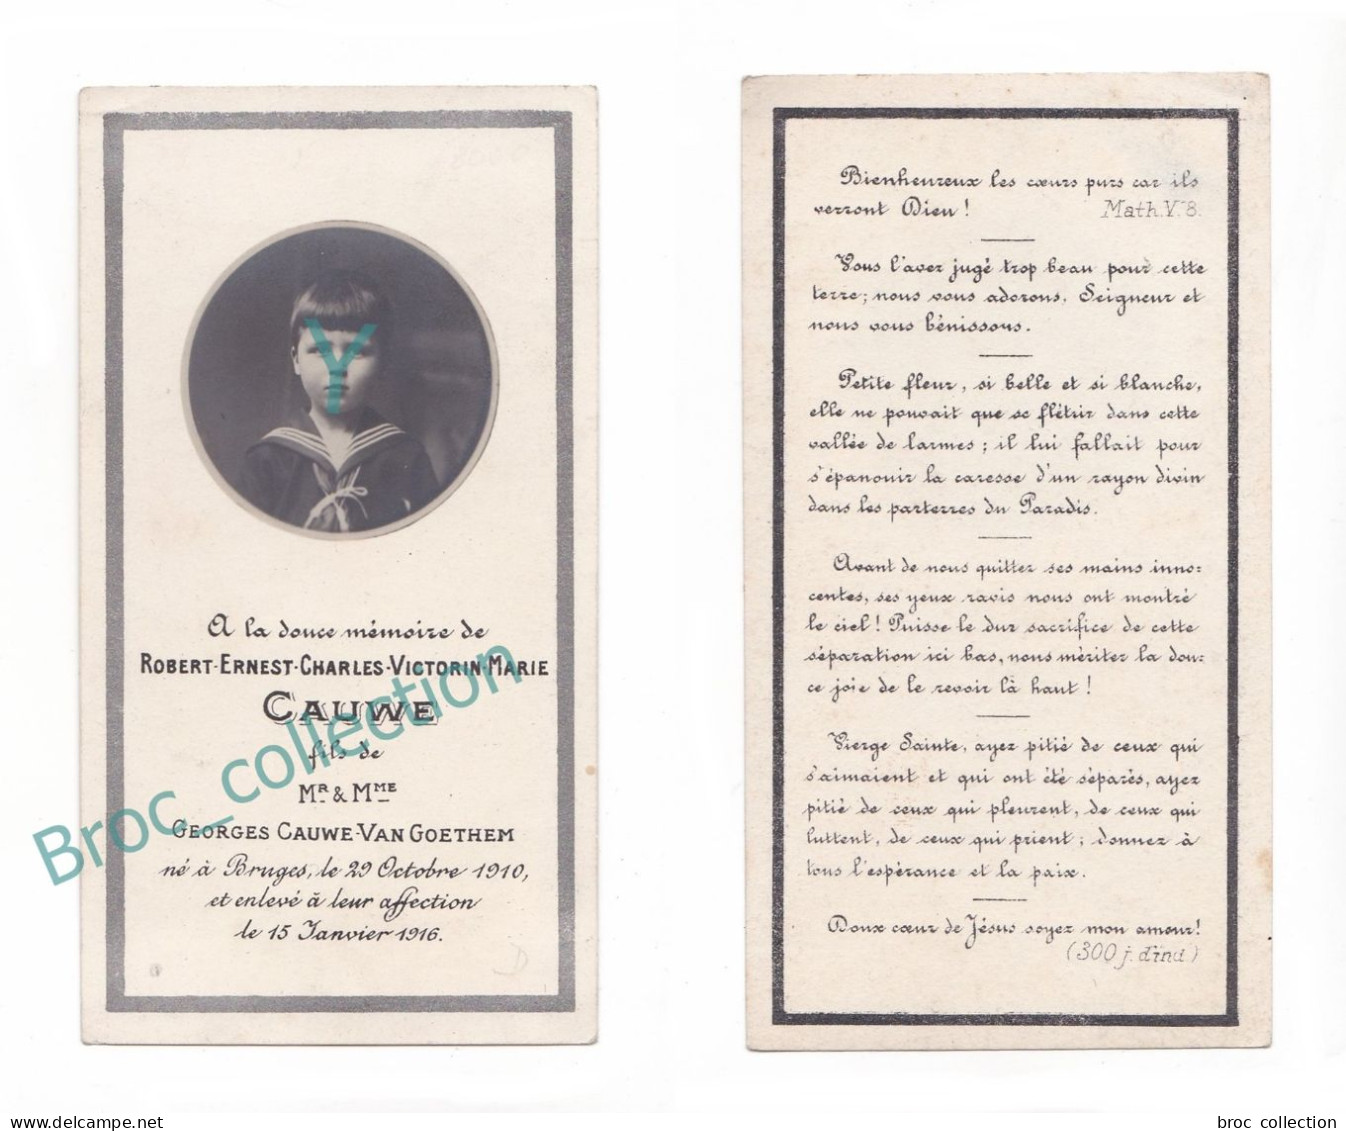 A la douce mémoire de
ROBERT-ERNEST-CHARLES-VICTORIN-MARIE
CAUWE
fils de
MR & MME
GEORGES CAUWE-VAN GOETHEM
né à Bruges, le 29 Octobre 1910,
et enlevé à leur affection
le 15 Janvier 1916.
D
Y
Broc_collection
Bienheureux les cœurs purs car ils
verront Dieu! Math. V. 8.
Vous l'avez jugé trop beau pour cette
terre; nous vous adorons, Seigneur et
nous vous bénissons.
Petite fleur, si belle et si blanche,
elle ne pouvait que se flétrir dans cette
vallée de larmes; il lui fallait pour
s'épanouir la caresse d'un rayon divin
dans les parterres du Paradis.
Avant de nous quitter ses mains inno-
centes, ses yeux ravis nous ont montré
le ciel! Puisse le dur sacrifice de cette
séparation ici bas, nous mériter la dou-
ce joie de le revoir là haut!
Vierge Sainte, ayez pitié de ceux qui
s'aimaient et qui ont été séparés, ayez
pitié de ceux qui pleurent, de ceux qui
luttent, de ceux qui prient; donnez à
tous l'espérance et la paix.
Doux cœur de Jésus soyez mon amour!
(300 j. d'ind.)
delcampe.net
broc collection